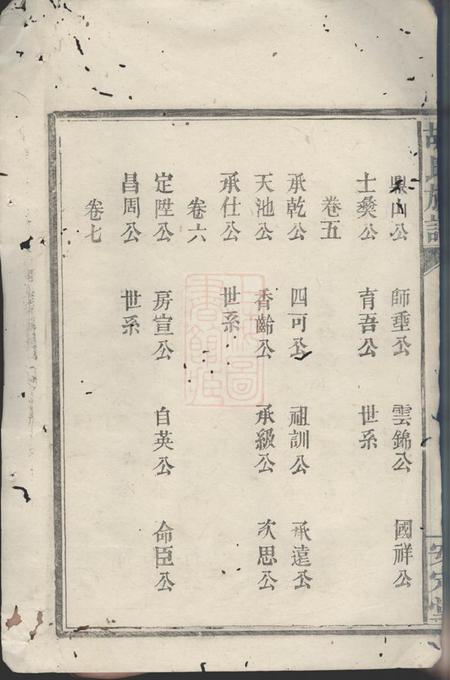 胡氏族譜
安定堂
鼎山公 師垂公 雲錦公 國祥公
士奏公 育吾公 世系
卷五
承乾公 四可公 祖訓公 承遠公
天池公 香齡公 承級公 次思公
承仕公 世系
卷六
定陞公 房宣公 自英公 命臣公
昌周公 世系
卷七